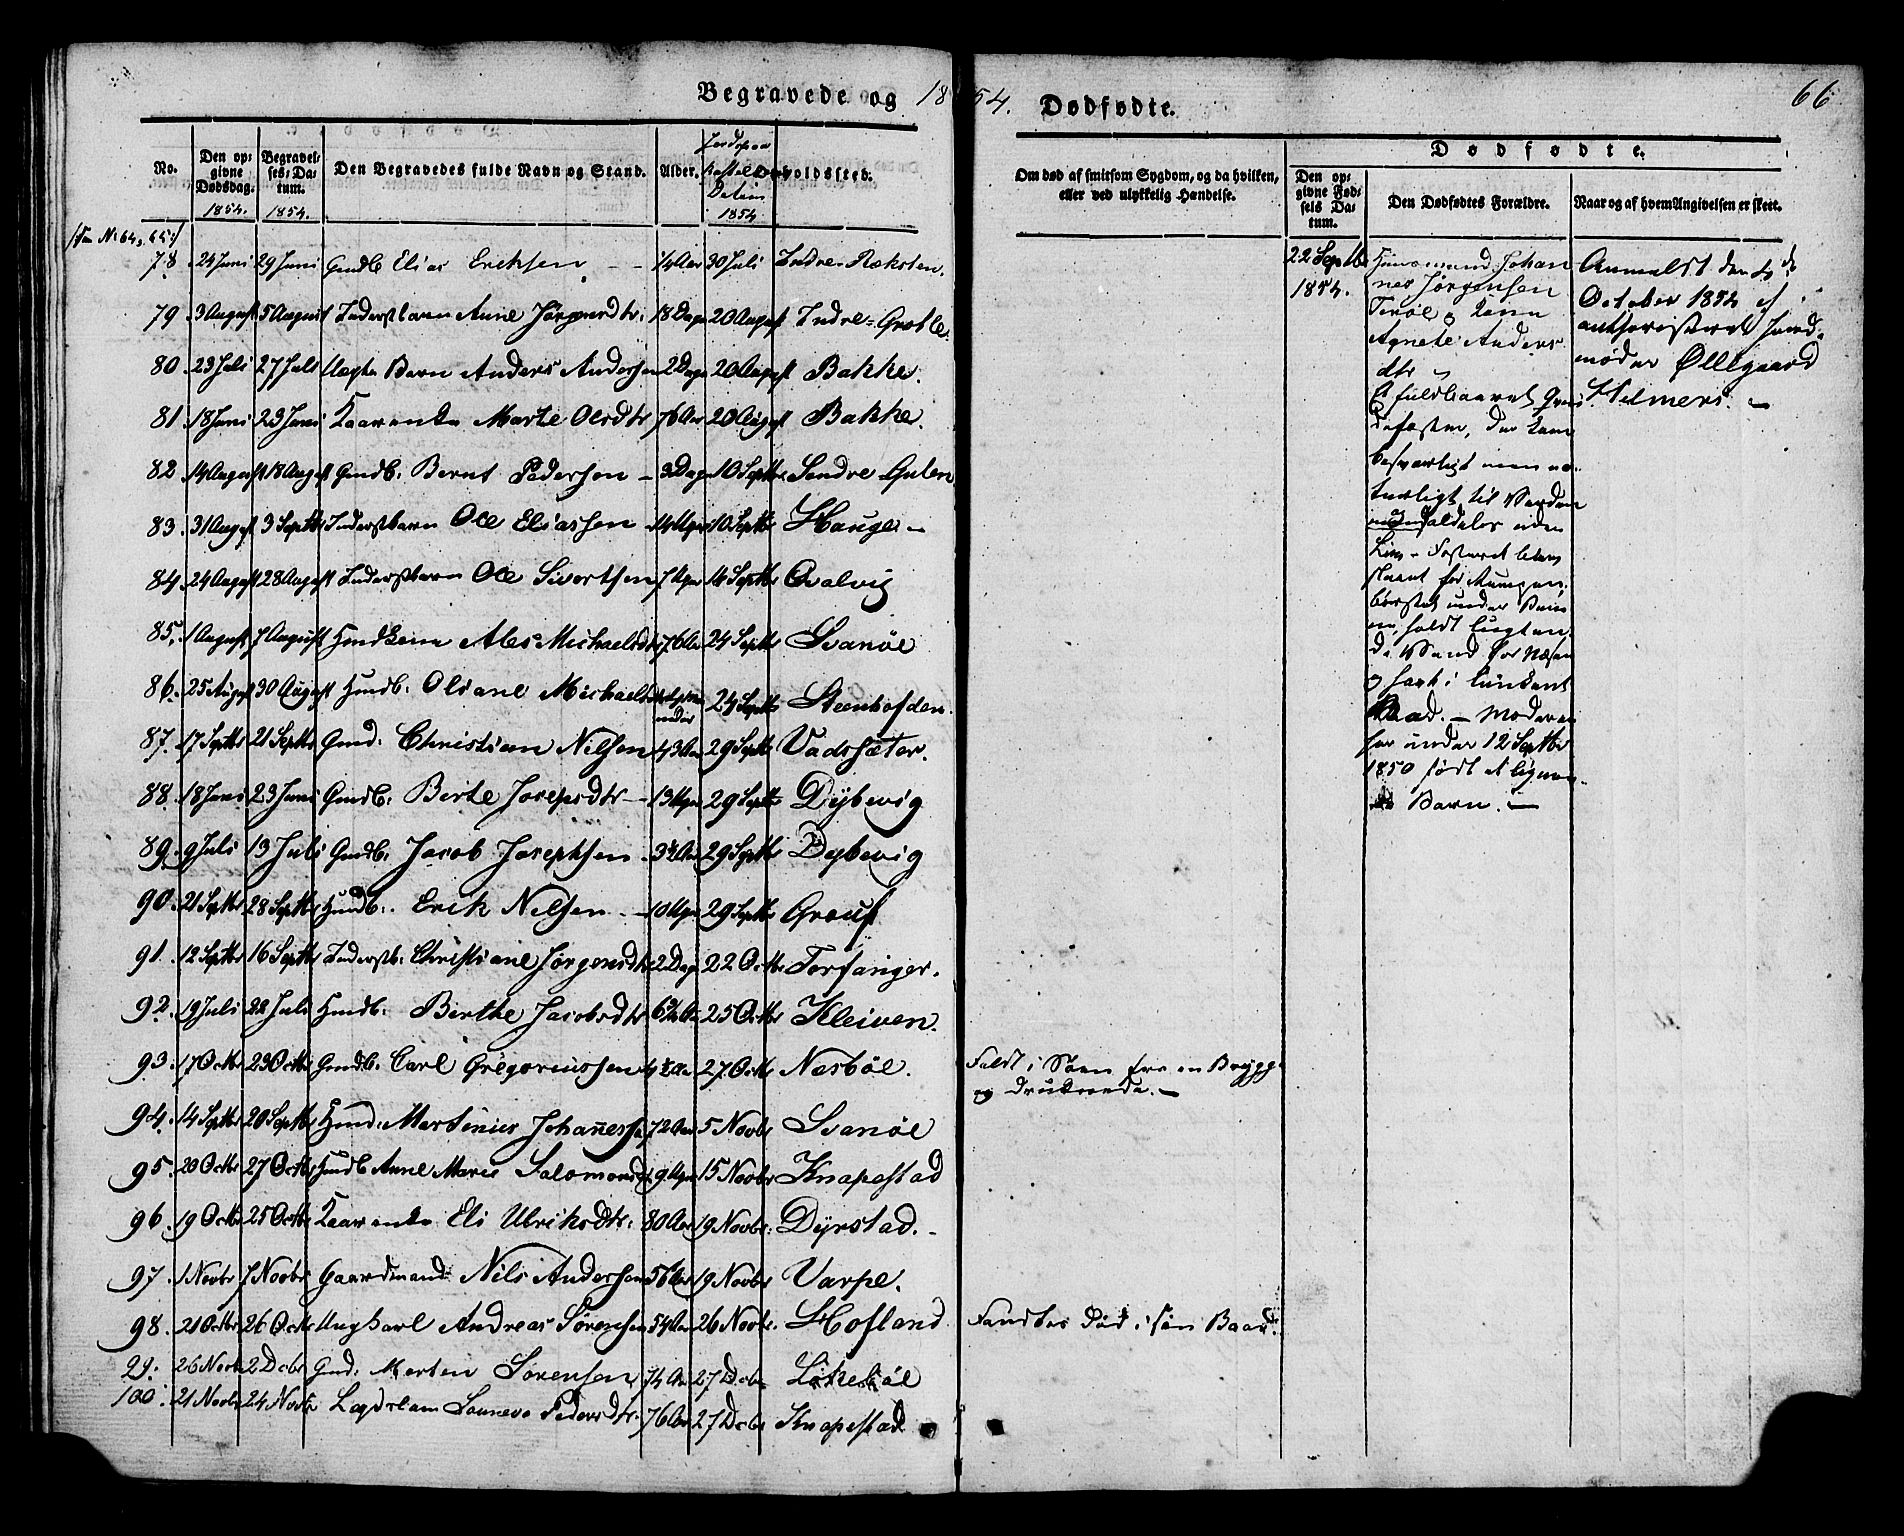 Begravede og 1854. Dødfødte. 66
No. Den opgivne Dødsdag. 1854. Begravelses-Datum. 1854. Den Begravedes fulde Navn og Stand. Alder. Datum 1854 Opholdssted.
Om død af smitsom Sygdom, og da hvilken, eller ved ulykkelig Hændelse.
Dødfødte.
Den opgivne Fødsels Datum. Den Dødfødtes Forældre. Naar og af hvem Angivelsen er skeet.
78. 24 Juni 29 Juni Gmdb. Elias Eriksen 30 Juli Indre-Ræksten.
79 3 August 5 August Inderstbarn Anne Jørgensdtr. 18 Dage 20 August Indre-Grøtle.
80. 23 Juli 27 Juli Uægte Barn Anders Andersen 2 Dage 20 August Bakke.
81. 18 Juni 23 Juni Kaarenke Marte Olsdtr 76 Aar 20 August Bakke.
82. 14 August 18 August Gmdb. Bernt Pedersen 3 Dage 10 Septbr Søndre Gulen
83. 31 August 3 Septbr Inderstbarn Ole Eliassen 14 Uger 10 Septbr Hauge
84. 24 August 28 August Inderstbarn Ole Sivertsen 7 Uger 14 Septbr Qvalvig
85. 1 August 7 August Hmdkone Ales Michaelsdtr 76 Aar 24 Septbr Svanøe
86. 25 August 30 August Hmdb. Oliane Michaelsdtr 24 Septbr Steenhofden.
87. 17 Septbr 21 Septbr Gmd. Christian Nilsen 43 Aar 29 Septbr Vadsæter.
88. 18 Juni 23 Juni Gmdb. Birte Josepsdtr 13 Uger 29 Septbr Dÿbevig
89. 9 Juli 13 Juli Gmdb. Jacob Josephsen 29 Septbr Dybevig
90. 21 Septbr 28 Septbr Hmdb. Erik Nilsen 10 Uger 29 Septbr Grouf
91. 12 Septbr 16 Septbr Inderstb. Christiane Jørgensdtr 2 Dage 22 Octbr Torfanger.
92. 19 Juli 22 Juli Hmdb. Birthe Jacobsdtr 25 Octbr Kleiven.
93. 17 Octbr 23 Octbr Gmdb. Carl Gregoriussen 27 Octbr Nesbøe.
Faldt i Søen fra en Brygge
og druknede.
94. 14 Septbr 20 Septbr Hmd. Martinus Johanessen 72 Aar 5 Novbr Svanøe
95. 20 Octbr 27 Octbr Hmdb Anne Marie Salomonsdtr 9 Uger 15 Novbr Knapestad
96. 19 Octbr 25 Octbr Kaarenke Eli Ulriksdtr. 80 Aar 19 Novbr. Dÿrstad.
97. 1 Novbr 7 Novbr Gaardmand Nils Andersen 56 Aar 19 Novbr Varpe.
98. 21 Octbr 26 Octbr Ungkarl Andreas Sørensen 54 Aar 26 Novbr. Hofland
Fandtes død i sin Baad.
99. 26 Novbr 2 Decbr Gmd. Morten Sørensen 74 Aar 27 Decbr Likebøe
100. 21 Novbr 24 Novbr Lægdslem Pedersdtr. 76 Aar 27 Decbr Knapestad
22 Septbr
1854.
Huusmand Johan
nes Jørgensen
Kone
Agnete Anders
dtr
Et fuldbaaret
besværligt men na
turligt til Verden
aldeles uden
Liv. Fosteret blev
børstet under
holdt lugten
de Vand for Næsen
sat i lunkent
Bad. Moderen
har under 12 Septbr
1850 født et lignen
de Barn.
Anmeldt den 4de
October 1854 af
authoriseret Jord
moder Øllegaard
Hilmers.